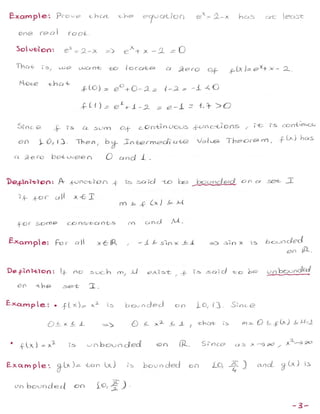 Example: Prove that the equation e^x = 2-x has at least
one real root.
Solution: e^x = 2-x => e^x + x - 2 = 0
That is, we want to locate a zero of f(x) = e^x + x - 2.
Note that
f(0) = e^0 + 0 - 2 = 1 - 2 = -1 < 0
f(1) = e^1 + 1 - 2 = e - 1 = 1.7 > 0
Since f is a sum of continuous functions, it is continuous
on [0,1]. Then, by Intermediate Value Theorem, f(x) has
a zero between 0 and 1.
Definition: A function f is said to be bounded on a set I
if for all x ∈ I
m ≤ f(x) ≤ M
for some constants m and M.
Example: For all x ∈ R, -1 ≤ sin x ≤ 1 => sin x is bounded
on R.
Definition: If no such m, M exist, f is said to be unbounded
on the set I.
Example: • f(x) = x² is bounded on [0,1]. Since
0 ≤ x ≤ 1 => 0 ≤ x² ≤ 1, that is m = 0 ≤ f(x) ≤ 1 = M
• f(x) = x² is unbounded on R. Since as x → ∞, x² → ∞
Example: g(x) = tan(x) is bounded on [0, π/4] and g(x) is
unbounded on [0, π/2).
-3-